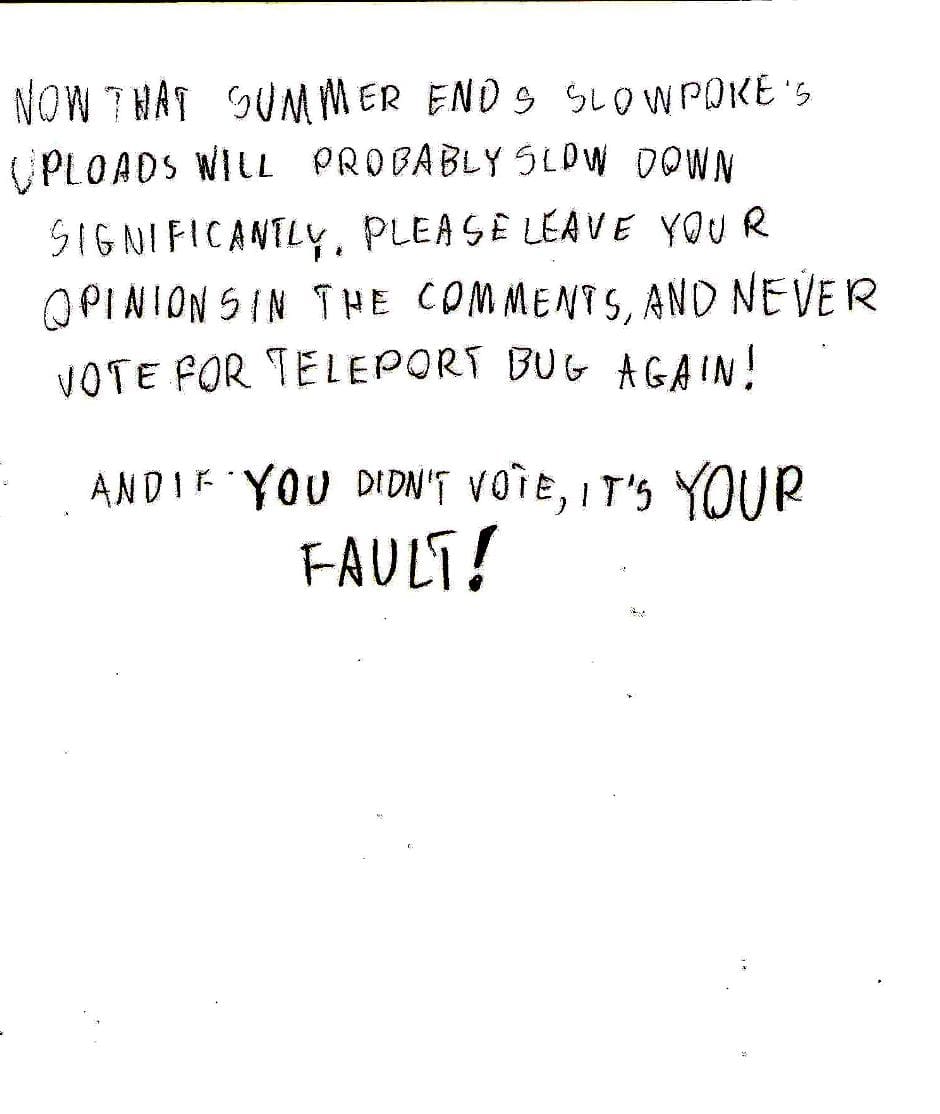 NOW THAT SUMMER ENDS SLOWPOKE'S
UPLOADS WILL PROBABLY SLOW DOWN
SIGNIFICANTLY. PLEASE LEAVE YOUR
OPINIONS IN THE COMMENTS, AND NEVER
VOTE FOR TELEPORT BUG AGAIN!
AND IF YOU DIDN'T VOTE, IT'S YOUR
FAULT!